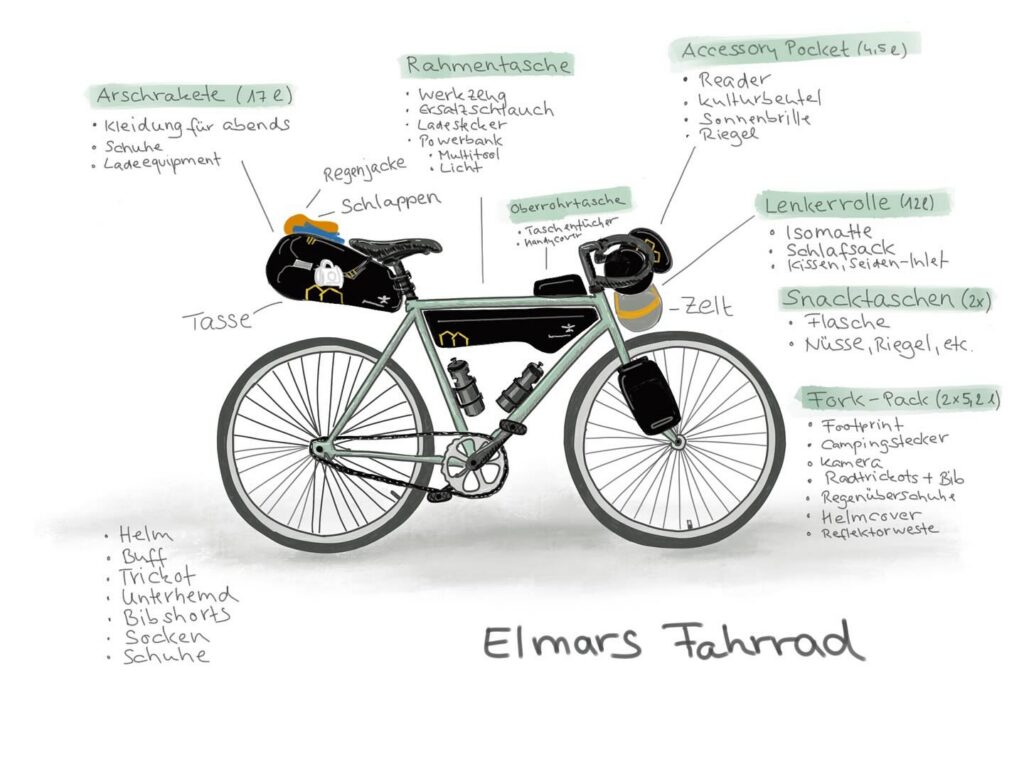 Arschrakete (17 l)
• Kleidung für abends
• Schuhe
• Ladeequipment
Regenjacke
Schlappen
Tasse
Rahmentasche
• Werkzeug
• Ersatzschlauch
• Ladestecker
• Powerbank
• Multitool
• Licht
Oberrohrtasche
• Taschentücher
• Handycover
Accessory Pocket (4,5 l)
• Reader
• Kulturbeutel
• Sonnenbrille
• Riegel
Lenkerrolle (12l)
• Isomatte
• Schlafsack
• Kissen, Seiden-Inlet
Zelt
Snacktaschen (2x)
• Flasche
• Nüsse, Riegel, etc.
Fork-Pack (2x5,2 l)
• Footprint
• Campingstecker
• Kamera
• Radtrickots + Bib
• Regenüberschuhe
• Helmcover
• Reflektorweste
• Helm
• Buff
• Trickot
• Unterhemd
• Bibshorts
• Socken
• Schuhe
Elmars Fahrrad